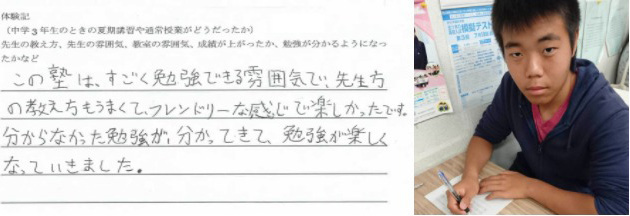 体験記
（中学３年生のときの夏期講習や通常授業がどうだったか）
先生の教え方、先生の雰囲気、教室の雰囲気、成績が上がったか、勉強が分かるようになっ
たかなど
この塾は、すごく勉強できる雰囲気で、先生方
の教え方もうまくて、フレンドリーな感じで楽しかったです。
分からなかった勉強が、分かってきて、勉強が楽しく
なっていきました。